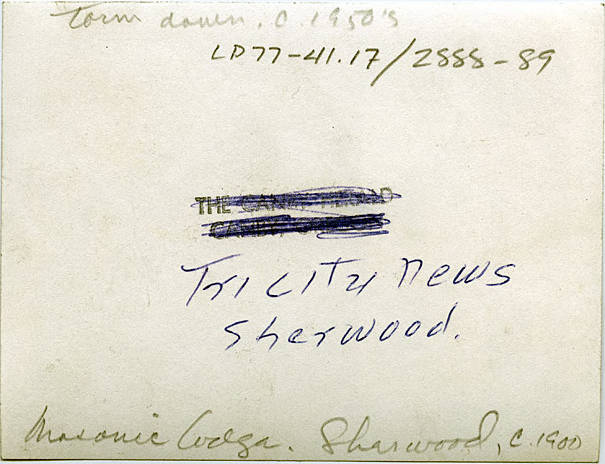 torn down, c. 1950's
LP77-41.17/2888-89
THE CANBY HERALD
CANBY,
Tri City News
Sherwood.
Masonic Lodge. Sherwood, c.1900